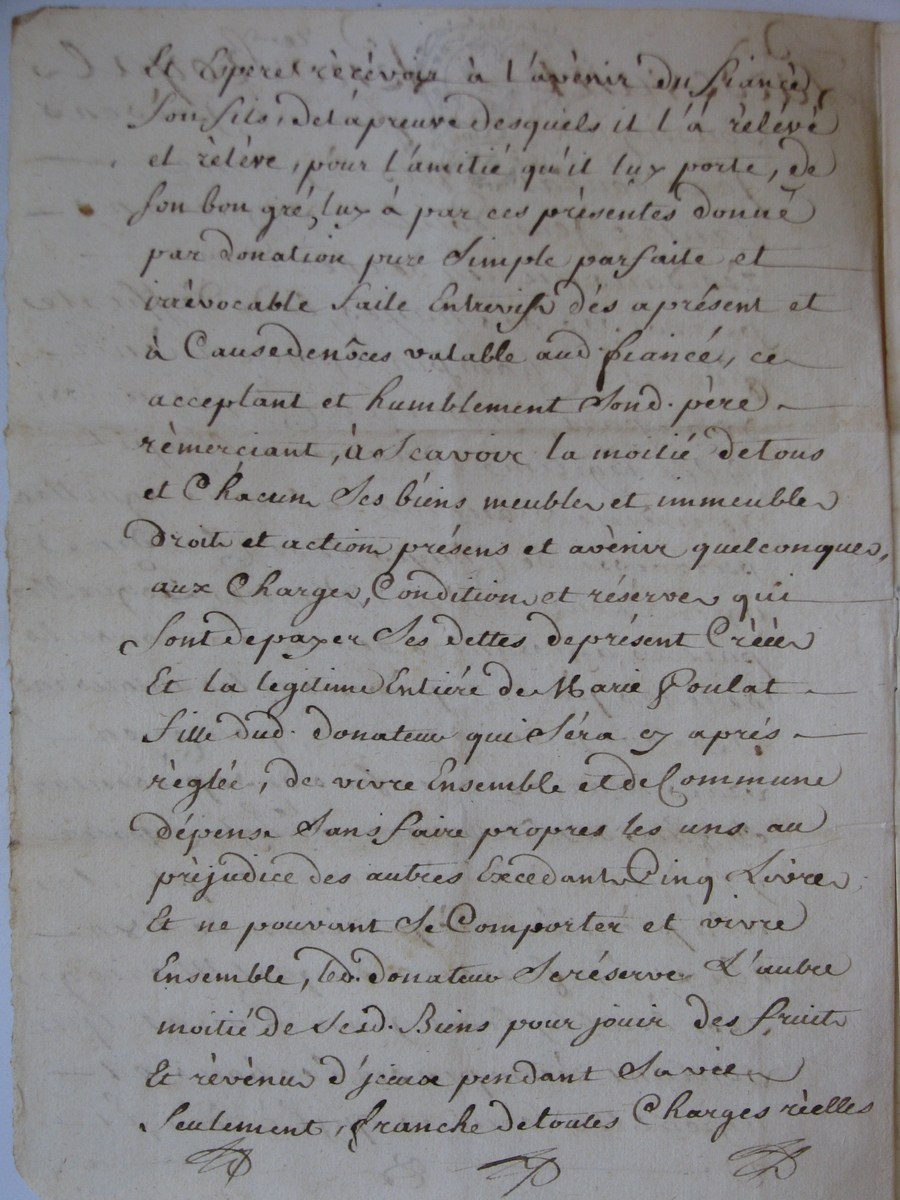 Et Espere rècévoir à l'avènir du fiancé
Son fils, de l'àpreuve desquels il l'à rélévé
et rèléve, pour l'amitié qu'il luy porte, de
son bon gré, luy à par ces présentes donné
par donation pure Simple parfaite et
irrèvocable faite Entrevifs dés aprésent et
à Cause de nôces valable aud. fiancé, ce
acceptant et humblement Sond. père
rèmerciant, à Scavoir la moitié de tous
et Chácun Ses biens meubles et immeubles
Droits et actions présens et avènir quelconques,
aux Charges, Conditions et réserves qui
Sont de payer Ses dettes de présent Créées
Et la legitime Entiére de Marie Poulat
fille dud. donateur qui Séra cy aprés
règlée, de vivre Ensemble et de Commune
dépense Sans faire propres les uns au
prèjudice des autres Excédants Cinq Livres
Et ne pouvant Se Comporter et vivre
Ensemble, led. donateur Se réserve L'autre
moitié de Sesd. Biens pour jouir des fruits
Et révènus d'jceux pendant Sa vie
Seulement, franche de toutes Charges rèelles